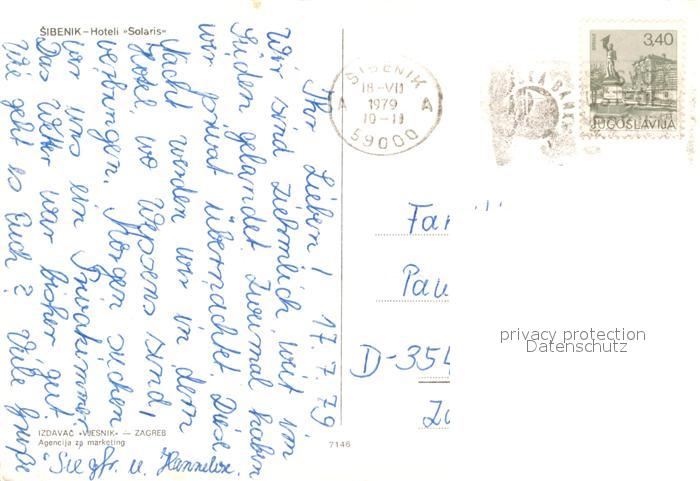 ŠIBENIK – Hoteli »Solaris«
Ihr Lieben! 17.7.79
Wir sind ziehmlich weit im
Süden gelandet. Zweimal haben
wir privat übernachtet. Diese
Nacht werden wir in dem
Hotel, wo Weysens sind,
verbringen. Morgen suchen
wir uns ein Privatzimmer.
Das Wetter war bisher gut.
Wie geht es Euch? Viele Grüße
Siegfr. u. Hannelore.
IZDAVAČ »VJESNIK« — ZAGREB
Agencija za marketing
7146
ŠIBENIK
18-VII
A 1979 A
10-11
59000
3,40
JUGOSLAVIJA
Fam
Pau
D-354
privacy protection
Datenschutz